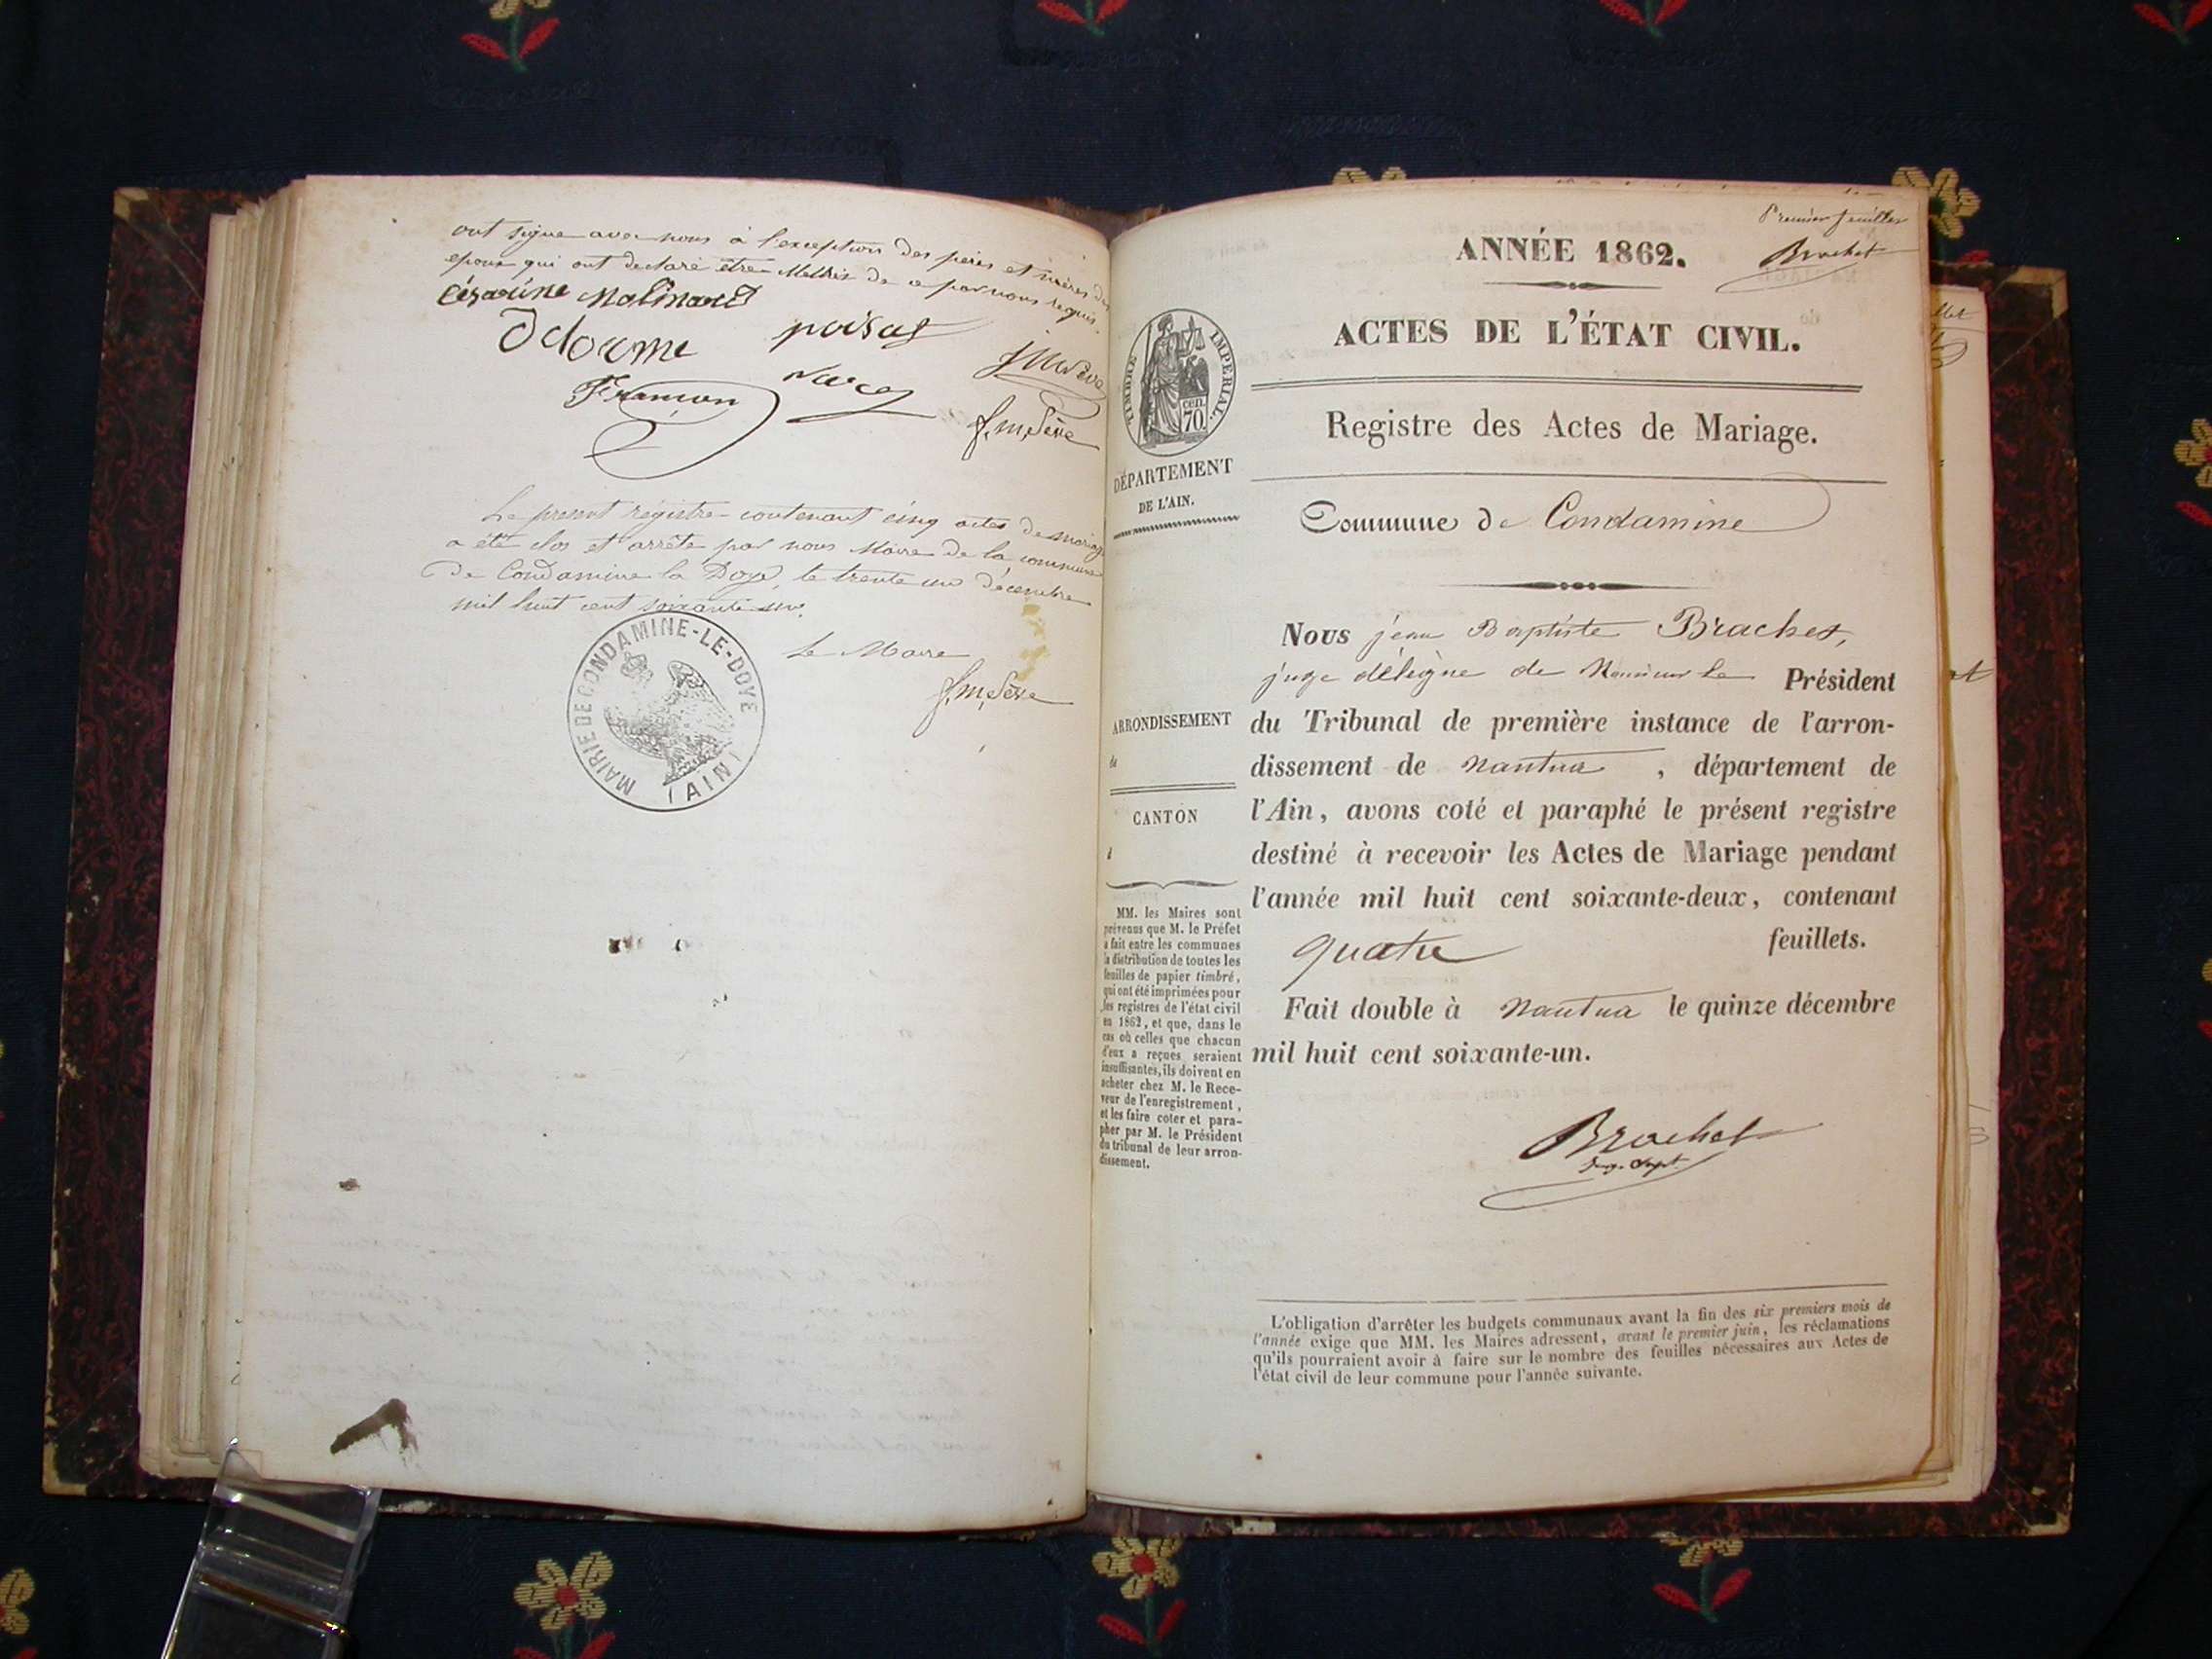 ont signé avec nous à l'exception des pères et mères des
epoux qui ont declaré être illétrés de ce par nous requis.
Césarine Molinard
Delorme
poisat
Françon
f. m, Sève
Le present régistre contenant cinq actes de mariage
a été clos et arrêté par nous Maire de la commune
de Condamine la Doye, le trente un décembre
mil huit cent soixante un.
MAIRIE DE CONDAMINE-LE-DOYE
(AIN)
Le Maire
f. m, Sève
Premier feuillet
Brachet
ANNÉE 1862.
ACTES DE L'ÉTAT CIVIL.
TIMBRE IMPERIAL.
cen.
70.
Registre des Actes de Mariage.
DÉPARTEMENT
DE L'AIN.
Commune de Condamine
Nous jean Baptiste Brachet,
juge délégué de Monsieur le Président
ARRONDISSEMENT
de
du Tribunal de première instance de l'arron-
dissement de nantua , département de
CANTON
d
l'Ain, avons coté et paraphé le présent registre
destiné à recevoir les Actes de Mariage pendant
l'année mil huit cent soixante-deux, contenant
quatre feuillets.
Fait double à nantua le quinze décembre
mil huit cent soixante-un.
Brachet
MM. les Maires sont
prévenus que M. le Préfet
a fait entre les communes
la distribution de toutes les
feuilles de papier timbré,
qui ont été imprimées pour
les registres de l'état civil
en 1862, et que, dans le
cas où celles que chacun
d'eux a reçues seraient
insuffisantes, ils doivent en
acheter chez M. le Rece-
veur de l'enregistrement,
et les faire coter et para-
pher par M. le Président
du tribunal de leur arron-
dissement.
L'obligation d'arrêter les budgets communaux avant la fin des six premiers mois de
l'année exige que MM. les Maires adressent, avant le premier juin, les réclamations
qu'ils pourraient avoir à faire sur le nombre des feuilles nécessaires aux Actes de
l'état civil de leur commune pour l'année suivante.